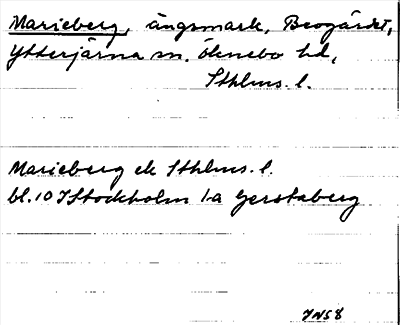 Marieberg, ängsmark, Beogärdet,
Ytterjärna sn. Öknebo hd,
Sthlms. l.
Marieberg ek Sthlms. l.
bl. 10 I Stockholm 1a Gerstaberg
INS8